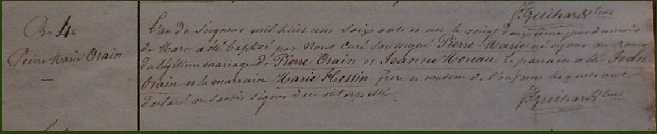 Bᵐ 4e
Pierre Marie Orain
J. Guihard
L'an du Seigneur mil huit cent soixante et un le vingt deuxième jour du mois
de Mars a été baptisé par Nous Curé soussigné Pierre Marie né
du légitime mariage de Pierre Orain et Jeanne Moreau, le parrain a été
Orain et la marraine Marie Hestin et cousine de l'enfant lesquels ont
déclaré ne savoir signer
J. Guihard